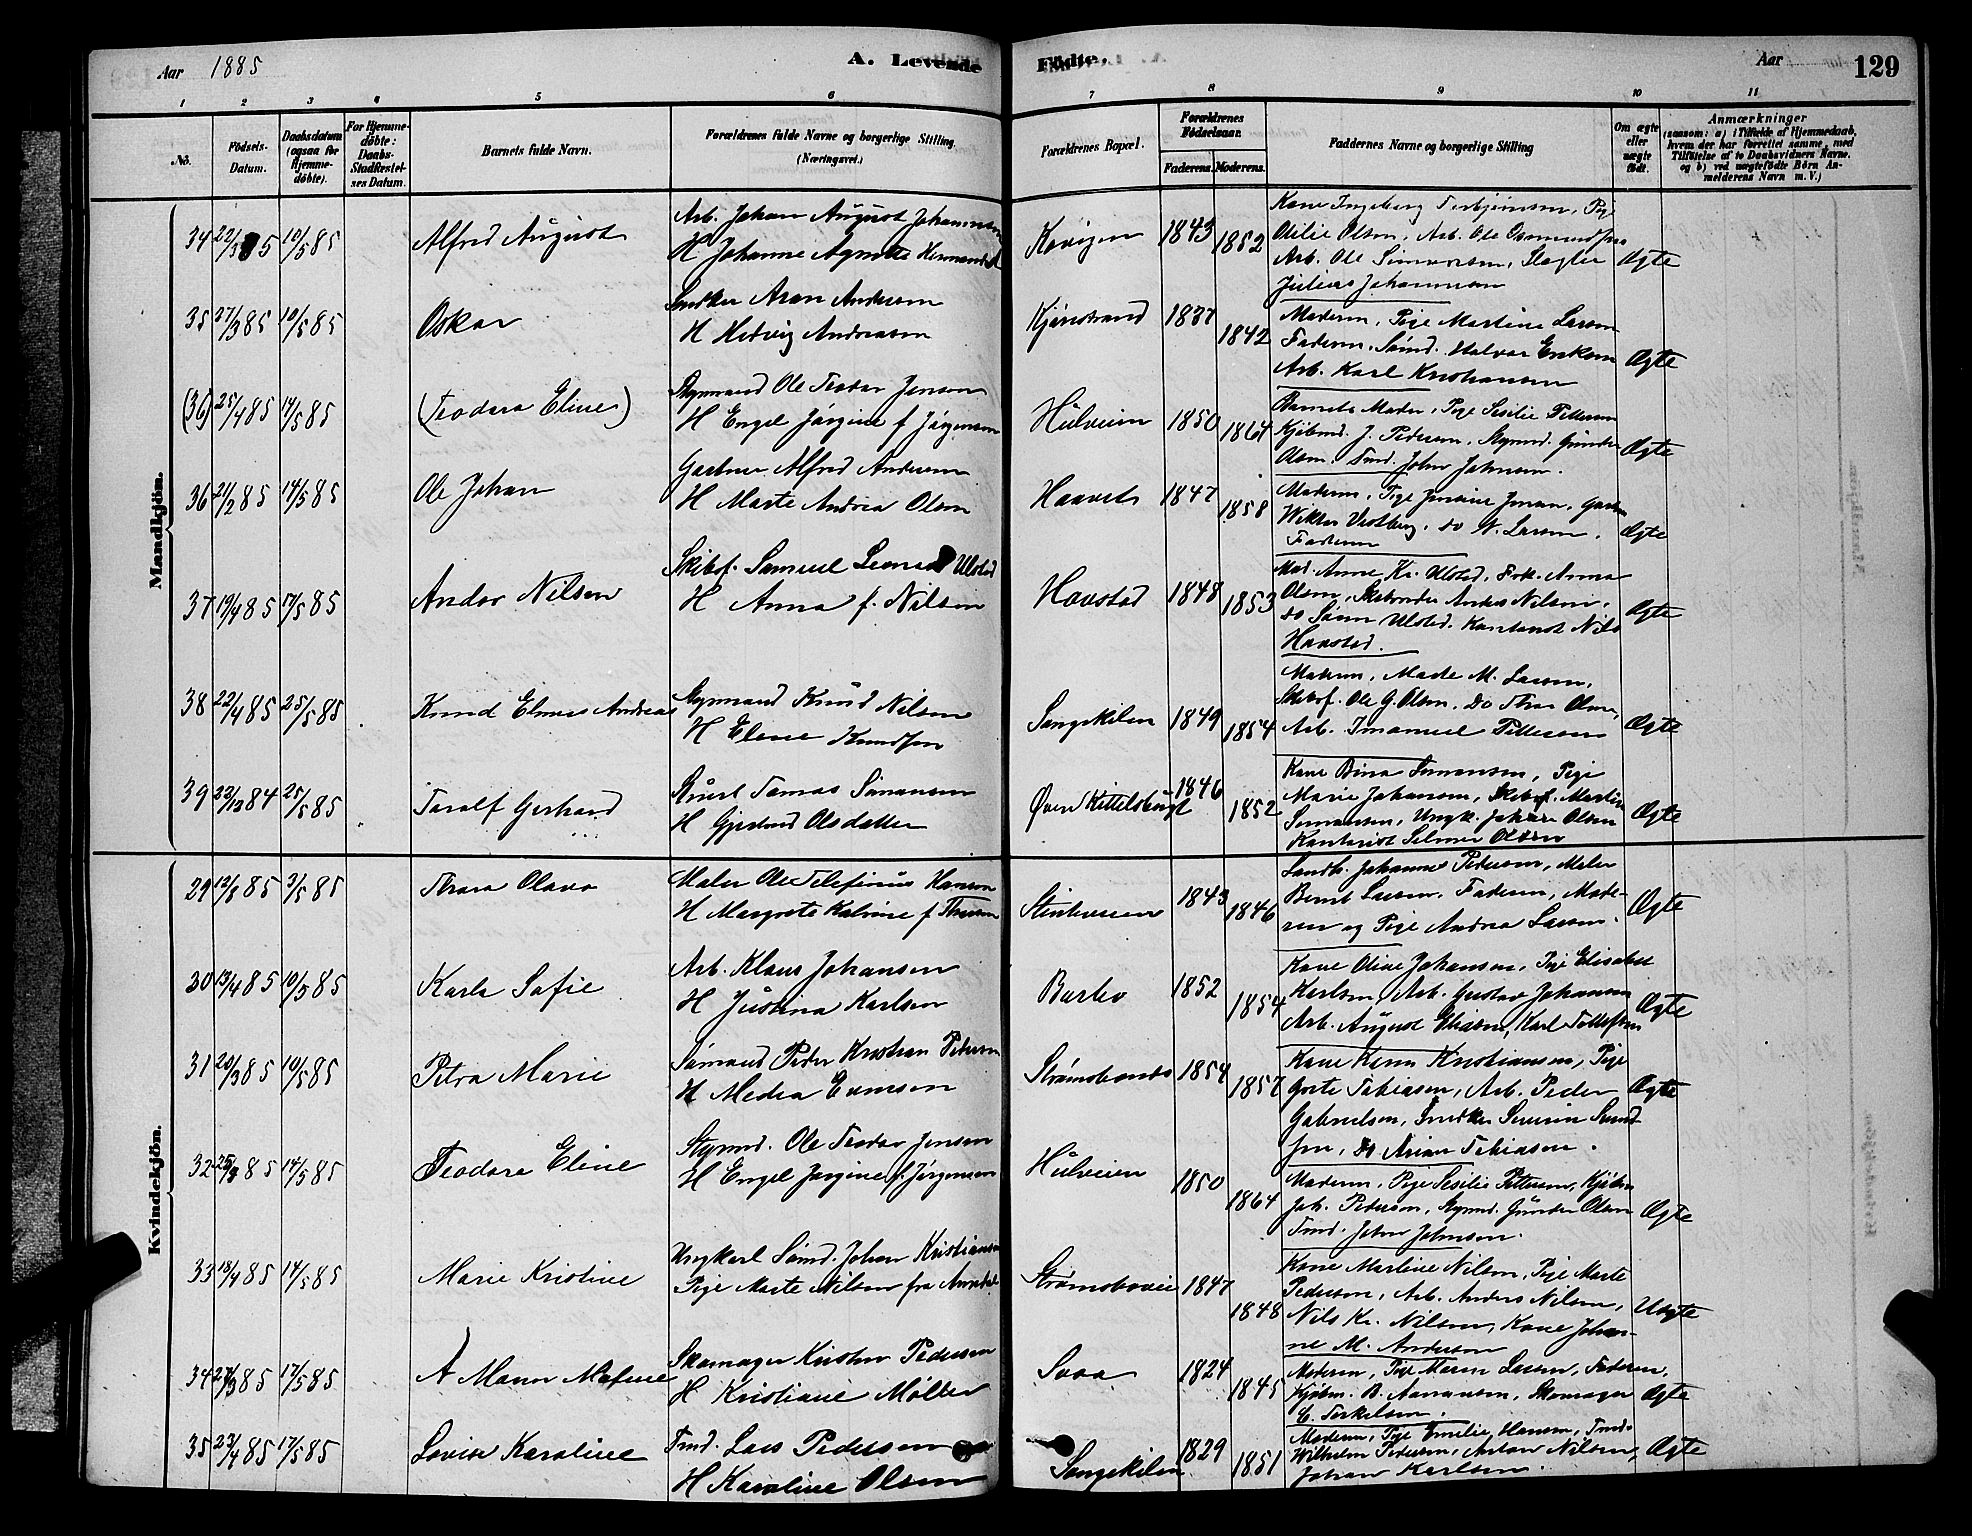 Aar 1885
A. Levende
Födte.
Aar
129
1 2 3 4 5 6 7 8 9 10 11
No.
Födsels-Datum.
Daabsdatum (ogsaa for Hjemme-döbte).
For Hjemme-döbte: Daabs-Stadfæstel-ses Datum.
Barnets fulde Navn.
Forældrenes fulde Navne og borgerlige Stilling. (Næringsvei.)
Forældrenes Bopæl.
Forældrenes Födselsaar.
Faderens. Moderens.
Faddernes Navne og borgerlige Stilling
Om ægte eller uægte födt.
Anmærkninger
(saasom: a) i Tilfælde af Hjemmedaab,
hvem der har forrettet samme, med
Tilföielse af to Daabsvidners Navne.
og b) ved uægtefödte Börn An-
melderens Navn m. V.)
Mandkjön.
34 22/3 85 10/5 85 Alfred August
Arb. Johan August Johannesen
H Johanne Agnette Hermansd
1843 1852
Kone Ingeborg Terkjersen, Pige
Otilie Olsen, Arb. Ole Osmundsen
Arb. Ole Simonsen, Slagter
Julius Johannsen
Ægte
35 27/3 85 10/5 85 Oskar
Snedker Aron Andersen
H Hedvig Andreasen
Kjønstrand 1837 1842
Moderen, Pige Martine Larsen
Faderen, Sömd. Halvor Eriksen
Arb. Karl Kristiansen
Ægte
(36) 25/4 85 14/5 85 (Teodora Eline)
Styrmand Ole Teodor Jensen
H Engel Jörgine f Jörgensen
Hulveien 1850 1864
Barnets Moder, Pige Sesilie Pettersen
Kjöbmd. J. Pedersen, Styrmd. Gunder
Olsen. Tmd. John Johnsen.
Ægte
36 21/2 85 14/5 85 Ole Johan
Gartner Alfred Andersen
H Marte Andrea Olsen
1847 1858
Moderen, Pige Jensine Jensen, Gartn
Wiktor Vestberg, do W. Larsen.
Faderen
Ægte
37 19/4 85 17/5 85 Andor Nilsen
Skibsf. Samuel Ulsted
H Anna f. Nilsen
Havstad 1848 1853
Mad. Anne Kr. Ulsted, Frk. Anna
Olsen, Skibsreder Anders Nilsen,
do Sören Ulsted. Kontorist Nils
Havstad.
Ægte
38 22/4 85 25/5 85 Knud Elmer Andreas
Styrmand Knud Nilsen
H Elene Knudsen
Songekilen 1849 1854
Moderen, Made M. Larsen,
Skibsf. Ole G. Olsen, do Thor Olsen,
Arb. Imanuel Tellesen
Ægte
39 22/12 84 25/5 85 Toralf Gerhard
Stuert Tomas Simonsen
H Gjertrud Olsdatter
Øvre Kittelsbugt 1846 1852
Kone Bina Simonsen, Pige
Marie Johansen, Skibsf. Martin
Simonsen, Ungk. Johan Olsen
Kontorist Selmer Olsen
Ægte
Kvindekjön.
29 12/8 85 3/5 85 Thora Olava
Maler Ole Telefinius Hansen
H Margrete Katrine f Thorsen
1843 1846
Sandb. Johannes Pedersen, Maler
Bernt Larsen. Faderen, Mode-
ren og Pige Andrea Larsen.
Ægte
30 13/4 85 10/5 85 Karla Sofie
Arb. Klaus Johansen
H Justina Karlsen
Barbo 1852 1854
Kone Oline Johansen, Pige Elisabet
Karlsen, Arb. Gustav Johansen
Arb. August Eliasen, Karl Tollefsen
Ægte
31 20/3 85 10/5 85 Petra Marie
Sömand Peder Kristian Petersen
H Medea Evensen
1854 1857
Kone Karen Kristiansen, Pige
Grete Tobiasen, Arb. Peder
Gabrielsen, Snedker Severin Sund
sen, do Arian Tobiasen.
Ægte
32 25/4 85 14/5 85 Teodora Eline
Styrmd. Ole Teodor Jensen
H Engel Jörgine f. Jörgensen
Hulveien 1850 1864
Moderen, Pige Sesilie Pettersen, Kjöbm
Joh. Pedersen, Styrmd. Gunder Olsen
Tmd. John Johnsen.
Ægte
33 18/4 85 14/5 85 Marie Kristine
Ungkarl Sömd. Johan Kristiansen
Pige Marte Nilsen fra Arendal
Strømsboveie 1847 1848
Kone Martine Nilsen, Pige Marte
Pedersen, Arb. Anders Nilsen,
Nils Kr. Nilsen, Kone Johan-
ne M. Andersen
Uægte
34 27/3 85 17/5 85 A Maren Mafine
Skomager Kristen Pedersen
H Kristiane Møller
1824 1845
Moderen, Pige Maren Larsen, Faderen,
Kjöbm. B. Aanonsen, Skomager
C. Terkelsen.
Ægte
35 23/4 85 17/5 85 Lovise Karoline
Tmd. Lars Pedersen
H Karoline Olsen
Songekilen 1829 1851
Moderen, Pige Emilie Hansen, Tmd.
Wilhelm Pedersen, Anton Nilsen,
Johan Karlsen.
Ægte